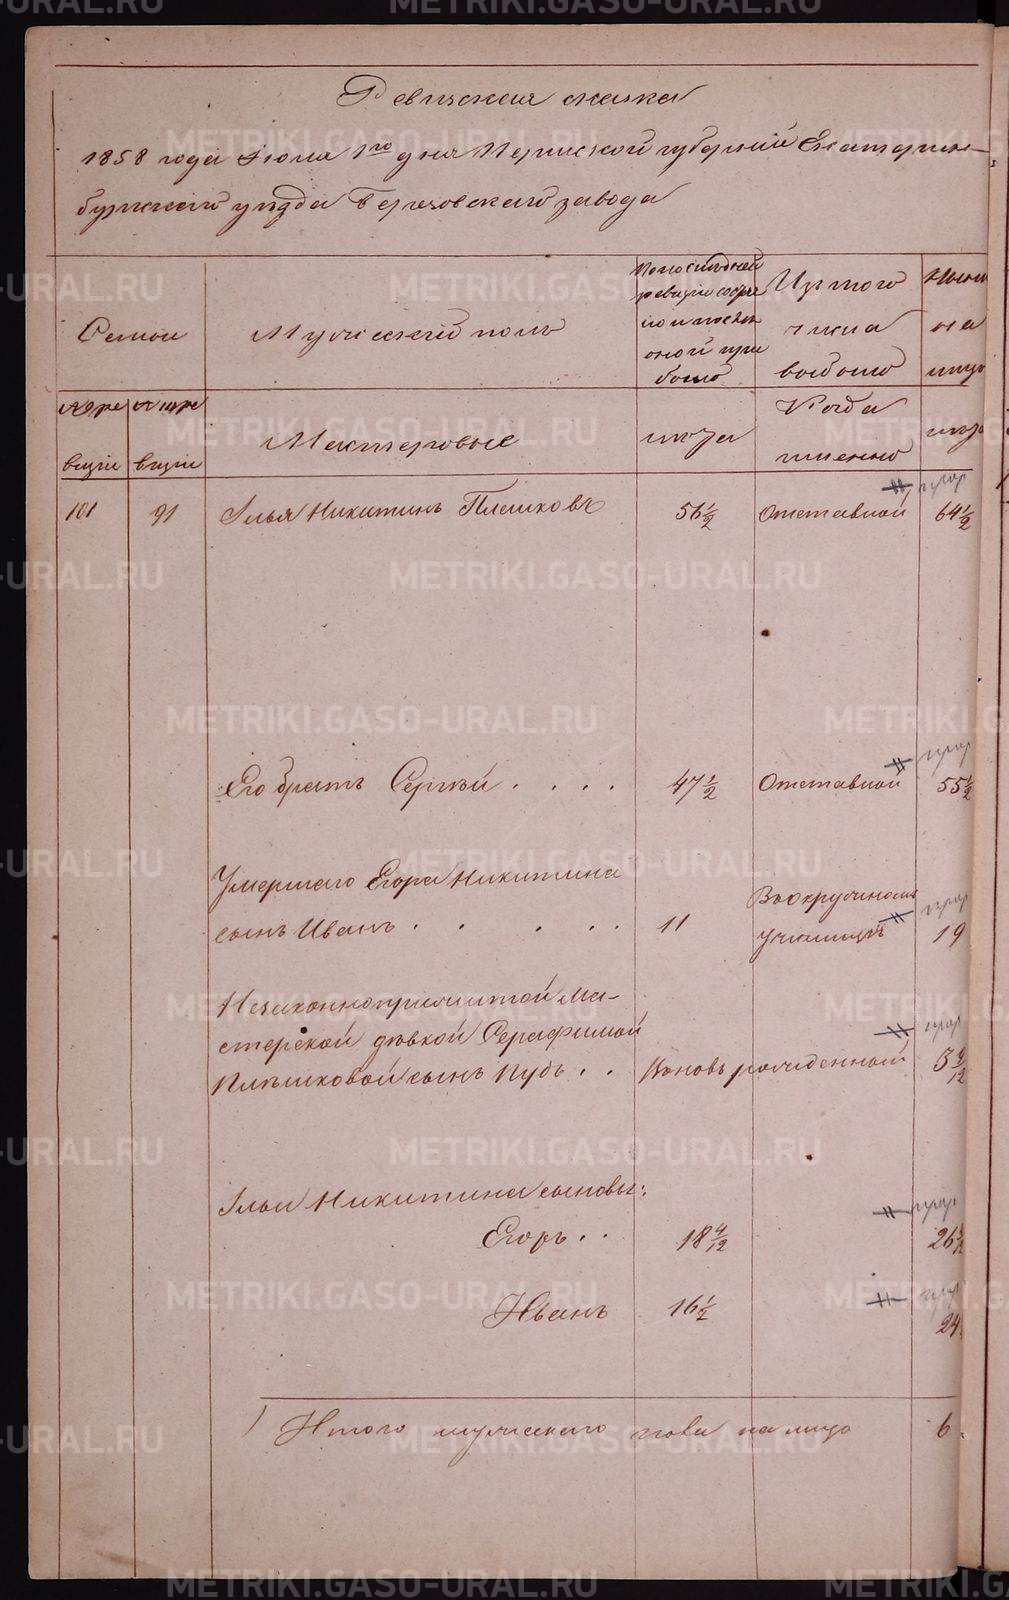 Ревизская сказка
1858 года Июня 1го дня Пермской губернии Екатерин-
бургского уезда Березовского завода
Семьи
Мужеский полъ
По последней
ревизии состоя
ло и после
оной при
было
Изъ того
числа
выбыло
Ныне
на
лицо
№ по
ревизiи
№ по
ревизiи
Мастеровые
лета
Когда
именно
лета
101 91 Илья Никитинъ Плешковъ 56 1/2 Отставной 64 1/2
Его братъ Сергей . . . . 47 1/2 Отставной 55 1/2
Умершаго Егора Никитина
сынъ Иванъ . . . . . 11
Въ окружномъ
училище
19
Незаконноприжитой ма-
стерской девкой Серафимой
Плешковой сынъ . . Вновь рожденный 5 4/12
Ильи Никитина сыновья:
Егоръ . . 18 4/12 26
Иванъ 16 1/2 24
Итого мужескаго пола на лицо 6
METRIKI.GASO-URAL.RU